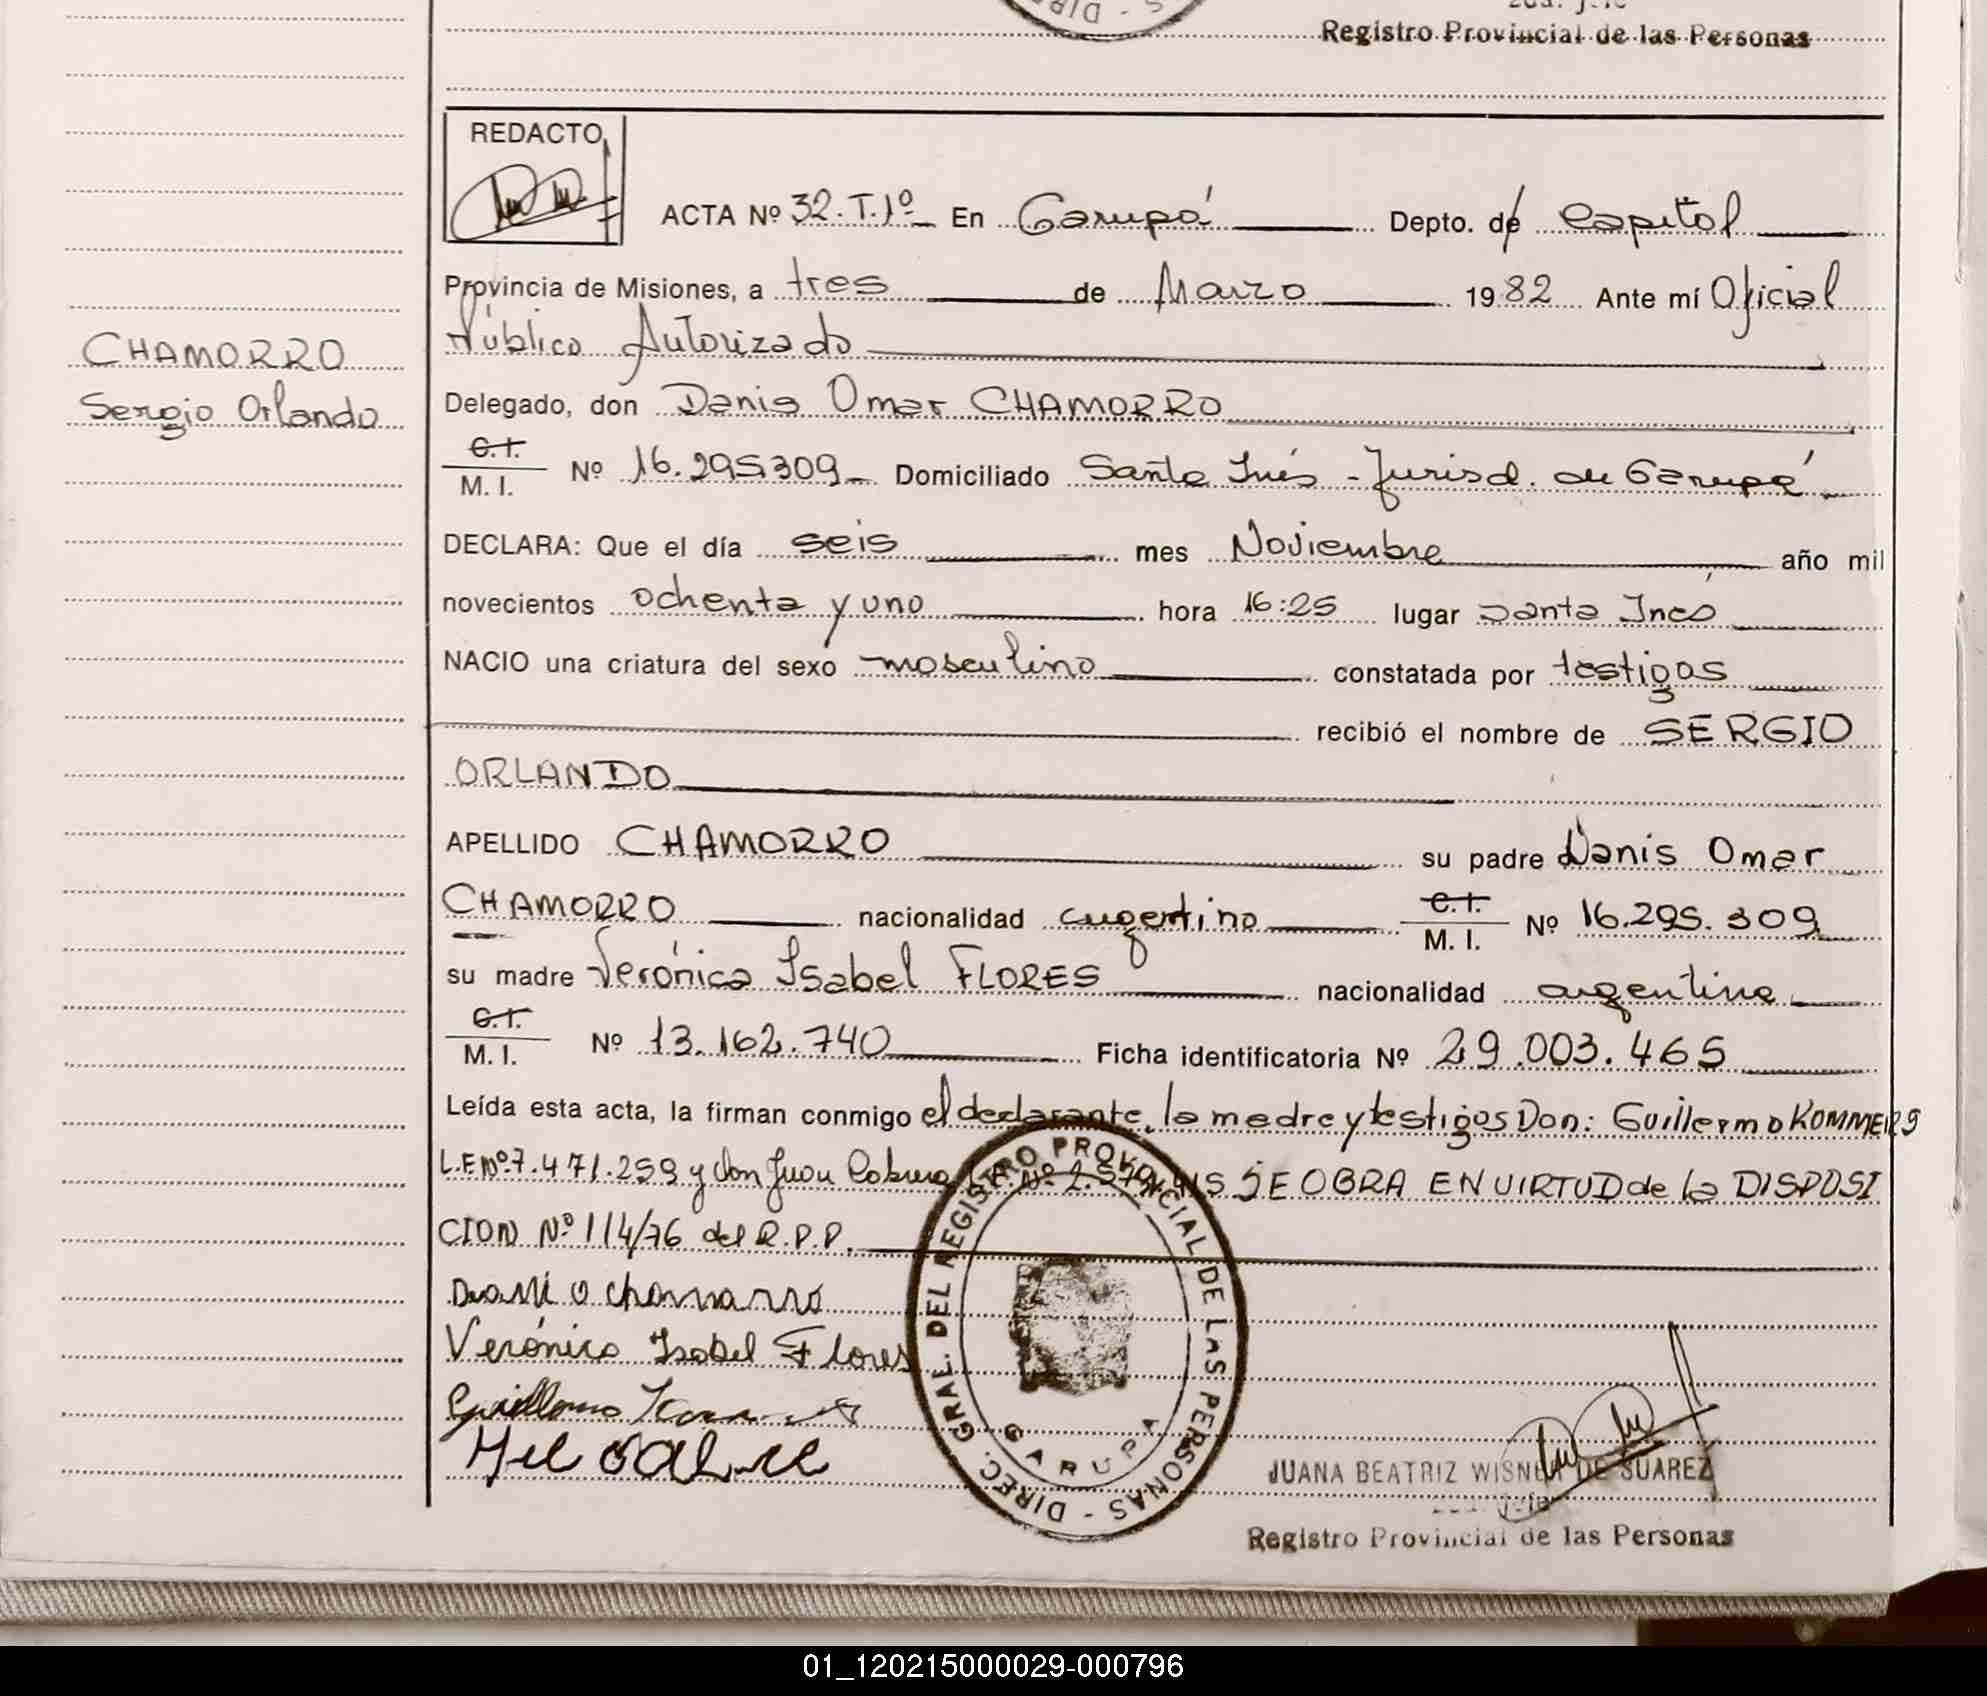 Registro Provincial de las Personas
REDACTO
ACTA Nº 32.T.1º En Garupá Depto. de Capital
Provincia de Misiones, a tres de Marzo 1982 Ante mí Oficial
Público Autorizado
CHAMORRO
Sergio Orlando
Delegado, don Danis Omar CHAMORRO
C.I.
M. I. Nº 16.295309 Domiciliado Santa Inés - Jurisd. de Garupá
DECLARA: Que el día seis mes Noviembre año mil
novecientos ochenta y uno hora 16:25 lugar Santa Inés
NACIO una criatura del sexo masculino constatada por testigos
recibió el nombre de SERGIO
ORLANDO
APELLIDO CHAMORRO su padre Danis Omar
CHAMORRO nacionalidad argentino C.I. M. I. Nº 16.295.309
su madre Verónica Isabel FLORES nacionalidad argentina
C.I.
M. I. Nº 13.162.740 Ficha identificatoria Nº 29.003.465
Leída esta acta, la firman conmigo el declarante, la madre y testigos Don: Guillermo KOMMERS
L.E Nº.7.471.259 y don Juan Nº SE OBRA EN VIRTUD de la DISPOSI
CION Nº 114/76 del R.P.P.
O Chamorro
Verónica Isabel Flores
Guillermo
DIREC. GRAL. DEL REGISTRO PROVINCIAL DE LAS PERSONAS -
GARUPA
JUANA BEATRIZ WISNER DE SUAREZ
Registro Provincial de las Personas
01_120215000029-000796